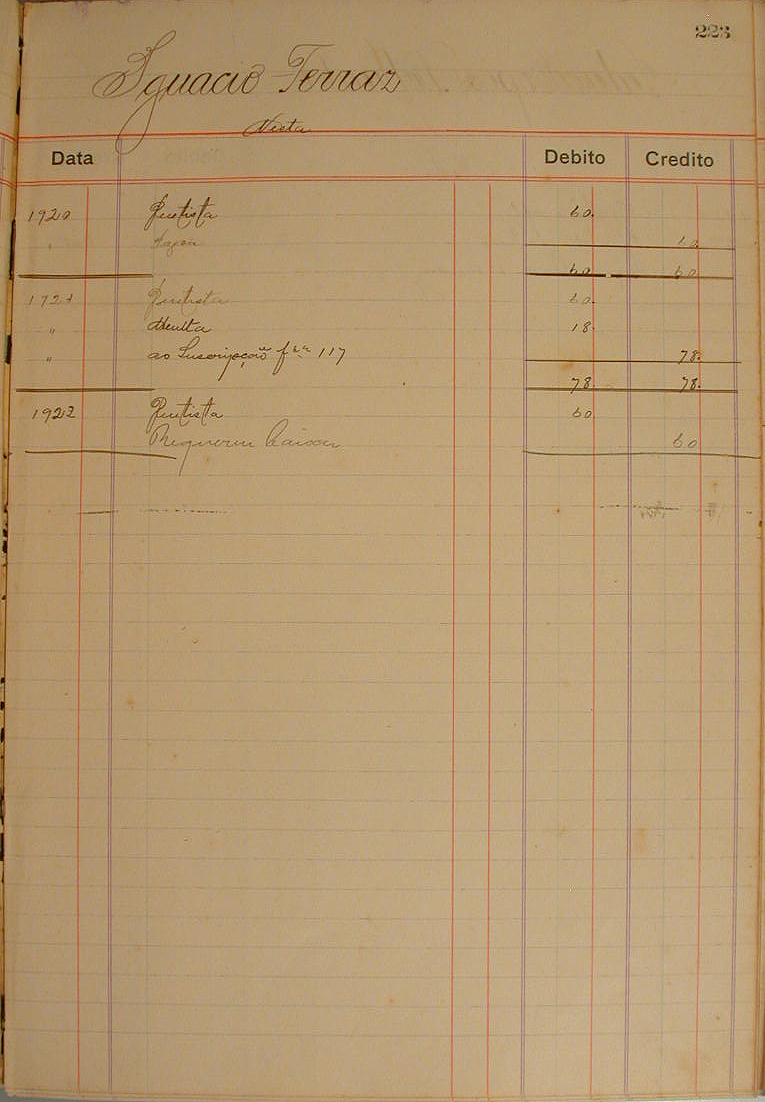 223
Ignacio Ferraz
Nesta
Data Debito Credito
1920 Quitista 60.
" 60.
60 60
1921 Quitista 60.
" Multa 18.
" ao Suscripção fls 117 78.
78. 78.
1922 Quitista 60
Requereu baixa 60